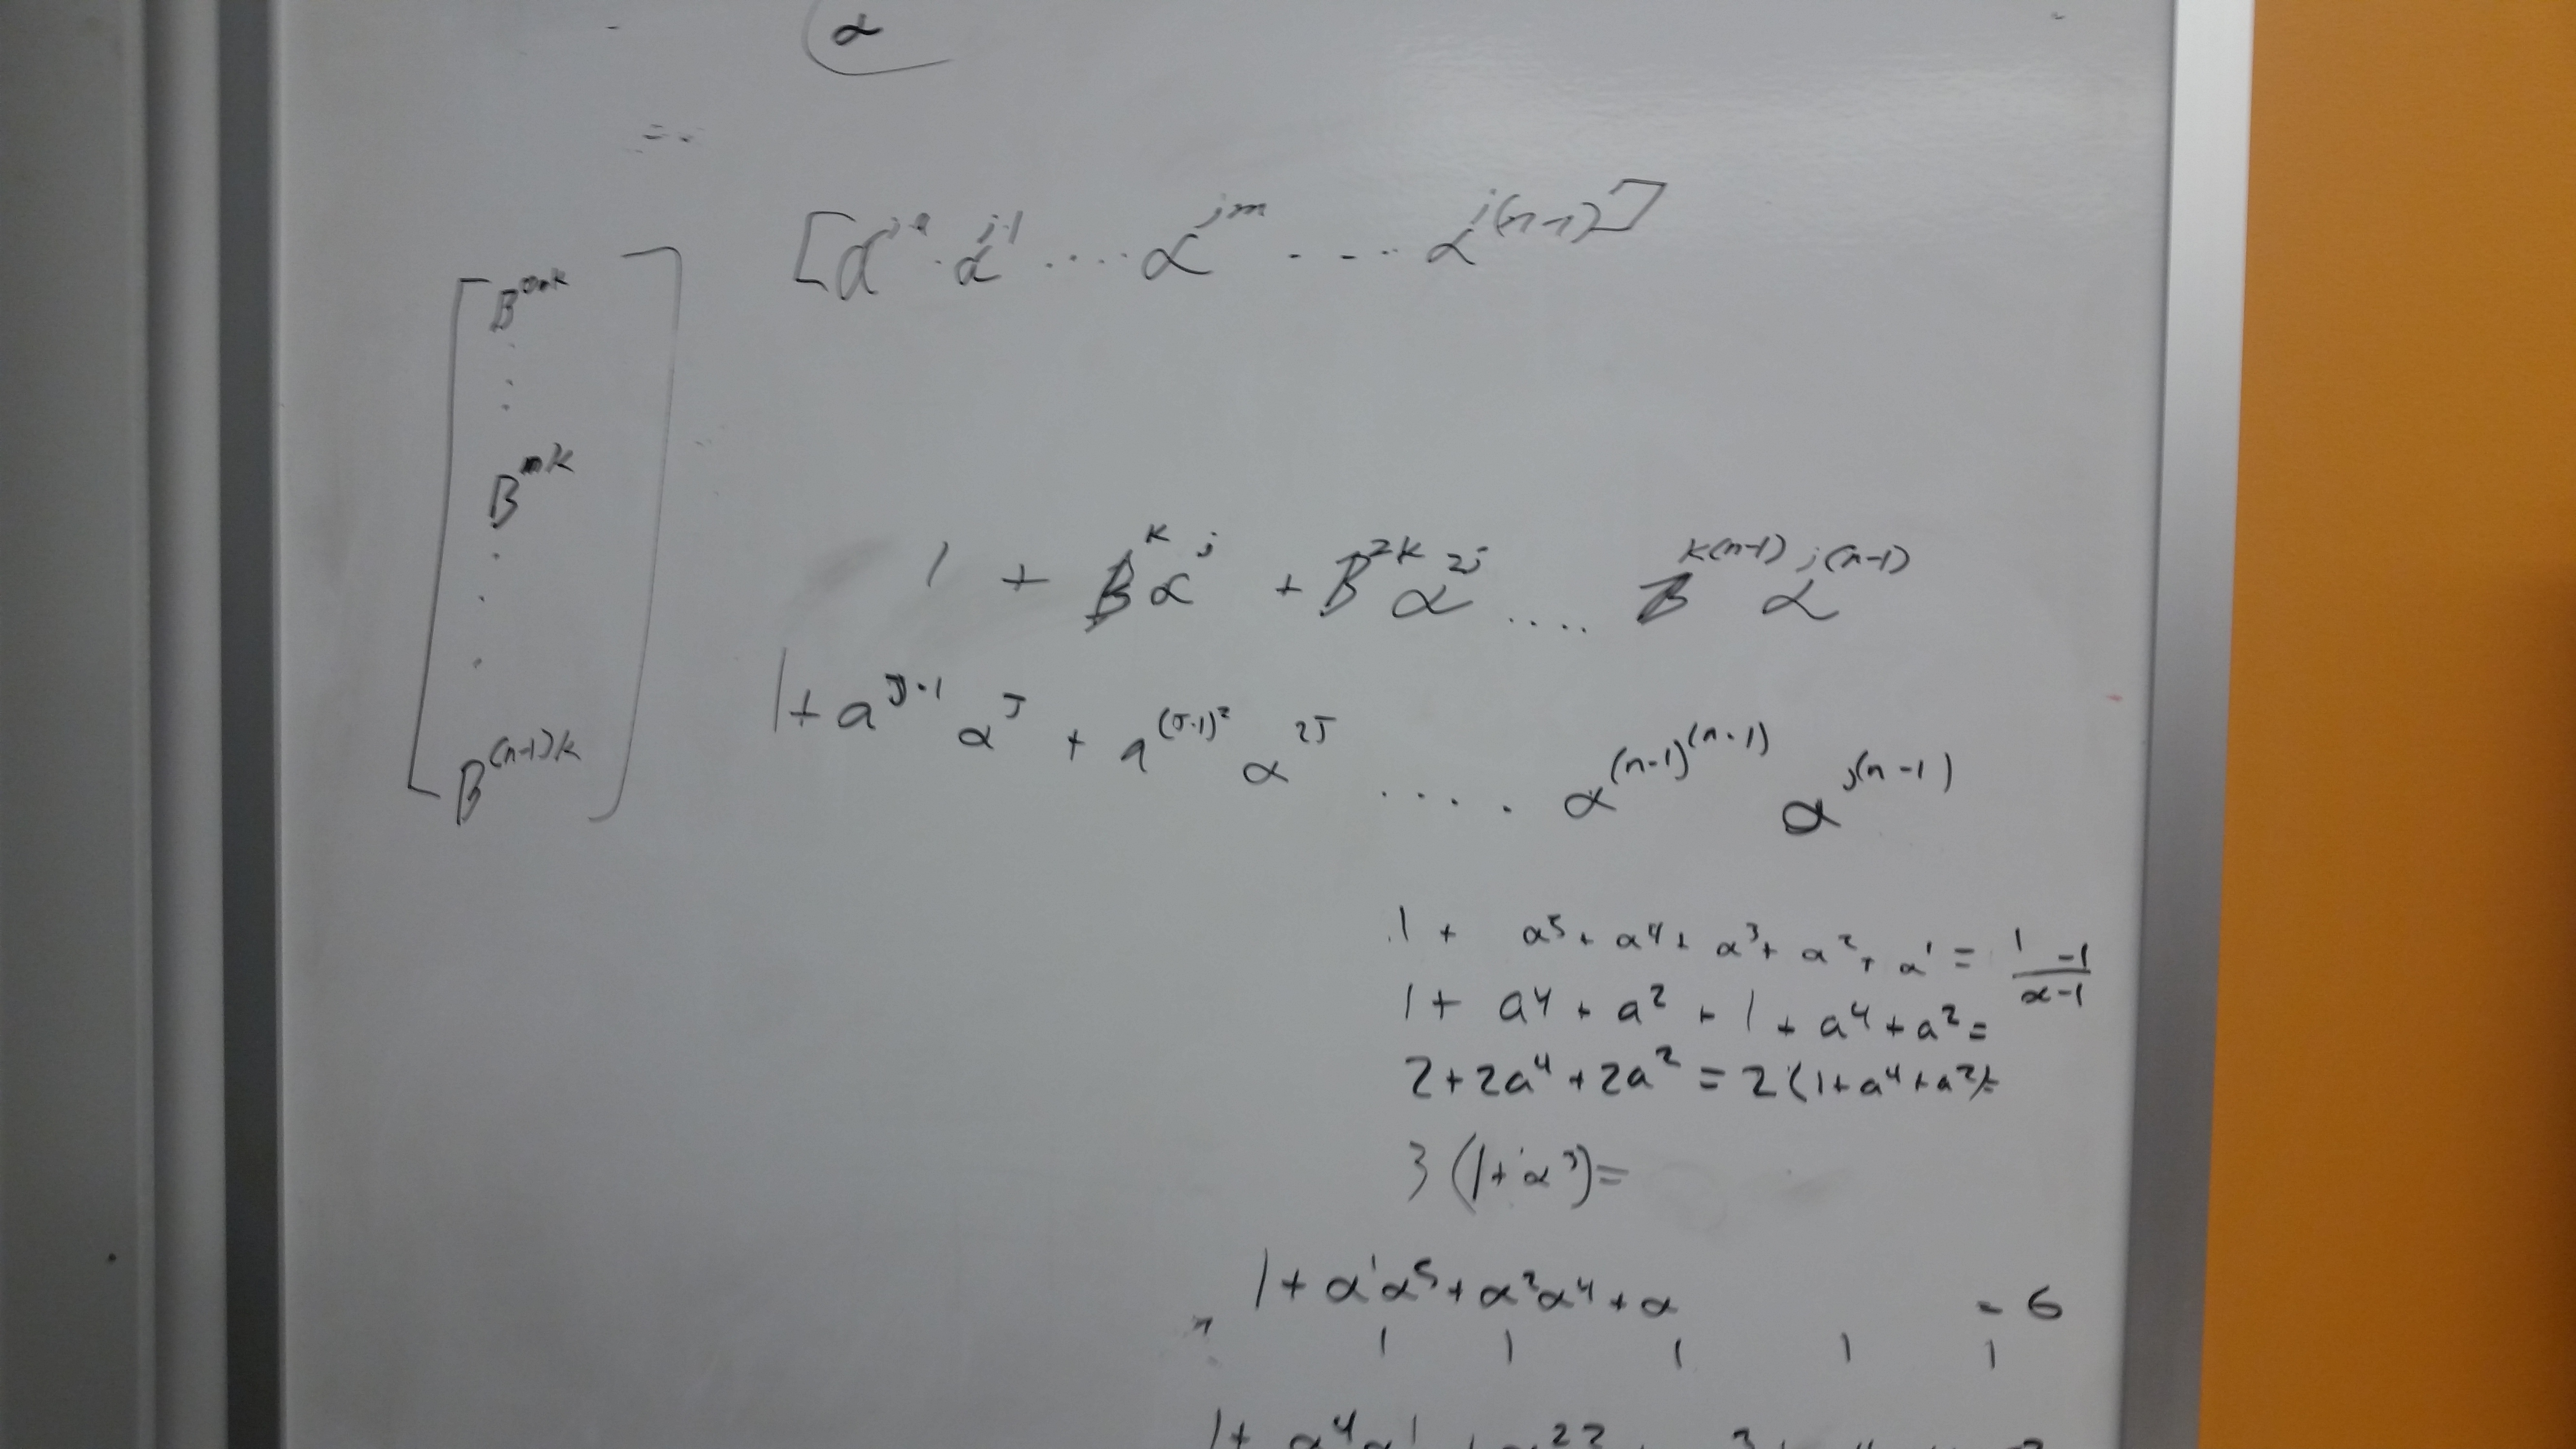 α
[α^{j0} α^{j1} .... α^{jm} .... α^{j(n-1)}]
B^{0k}
B^{mk}
B^{(n-1)k}
1 + B^k α^j + B^{2k} α^{2j} .... B^{k(n-1)} α^{j(n-1)}
1 + a^{J-1} α^J + a^{(J-1)^2} α^{2J} .... α^{(n-1)^{(n-1)}} α^{j(n-1)}
1 + α^5 + α^4 + α^3 + α^2 + α^1 = \frac{1 -1}{α-1}
1 + a^4 + a^2 + 1 + a^4 + a^2 =
2 + 2a^4 + 2a^2 = 2(1 + a^4 + a^2) =
3 (1 + α^3) =
1 + α^1 α^5 + α^2 α^4 + α = 6
1 1 1 1 1
1 + α^4 α^1